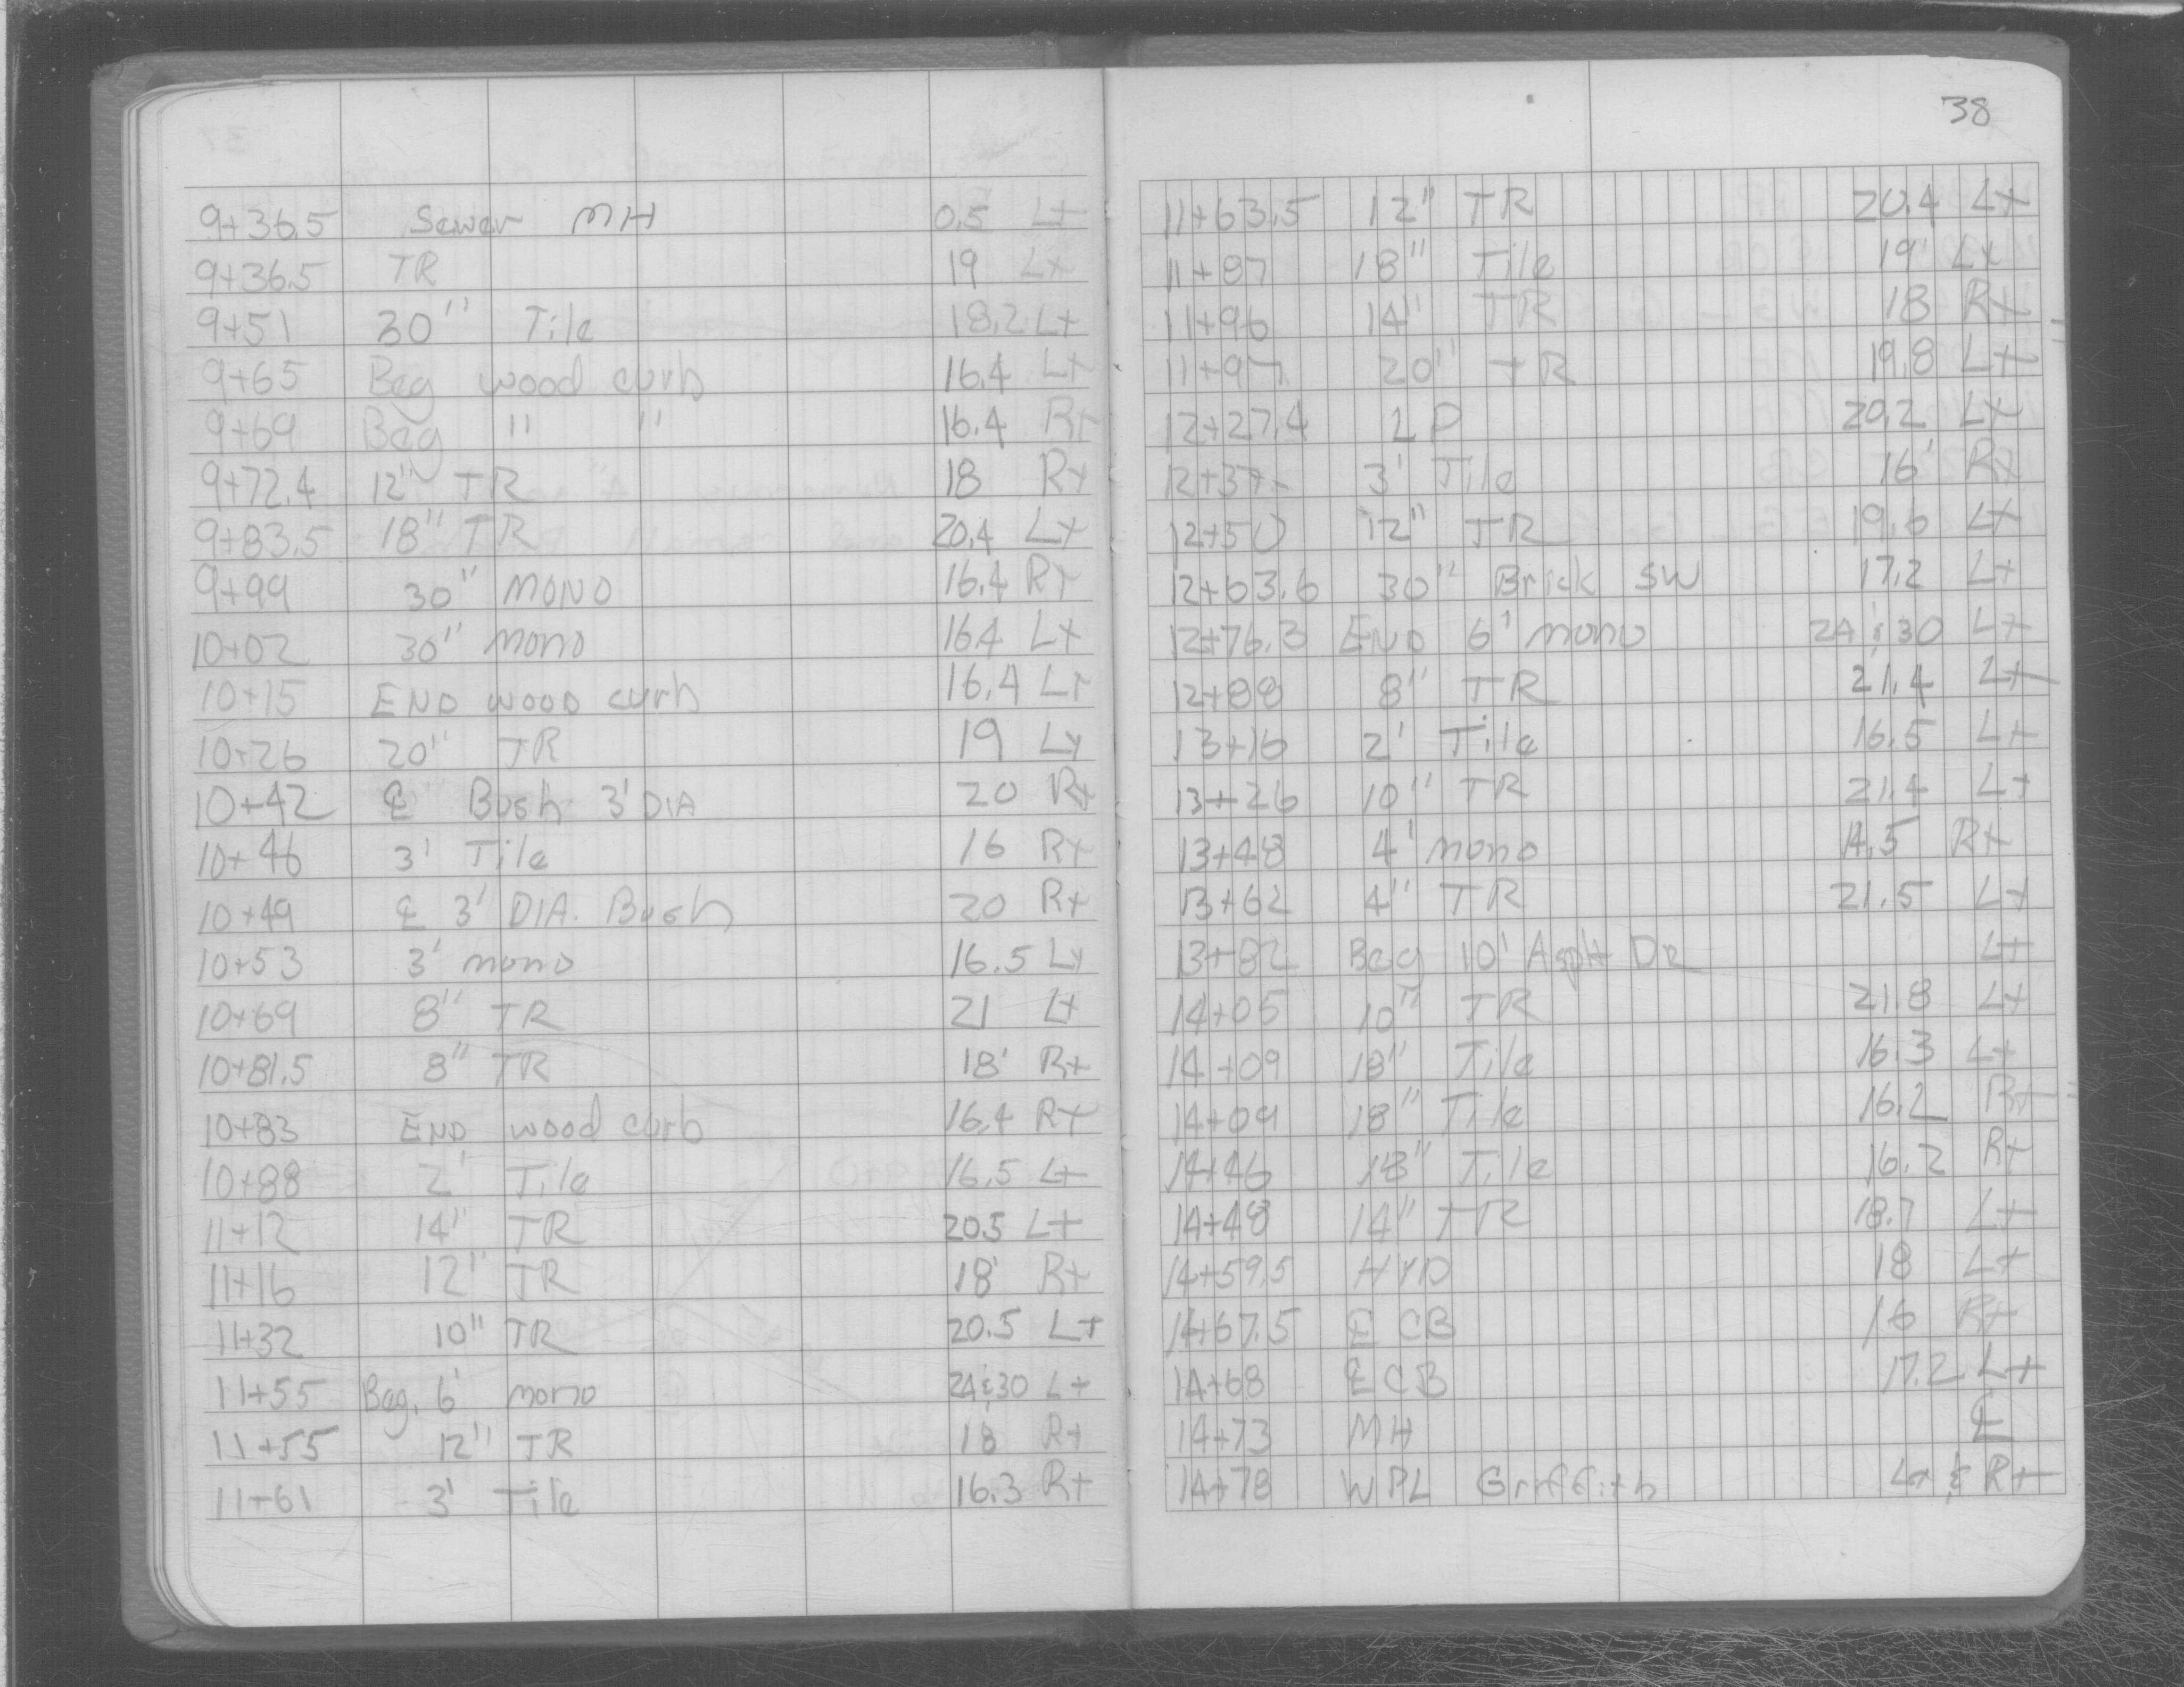 9+36.5 Sewer MH 0.5 Lt
9+36.5 TR 19 Lt
9+51 30" Tile 18.2 Lt
9+65 Beg wood curb 16.4 Lt
9+69 Beg " " 16.4 Rt
9+72.4 12" TR 18 Rt
9+83.5 18" TR 20.4 Lt
9+99 30" MONO 16.4 Rt
10+02 30" mono 16.4 Lt
10+15 END wood curb 16.4 Lt
10+26 20" TR 19 Lt
10+42 ℄ Bush 3' DIA 20 Rt
10+46 3' Tile 16 Rt
10+49 ℄ 3' DIA. Bush 20 Rt
10+53 3' mono 16.5 Lt
10+69 8" TR 21 Lt
10+81.5 8" TR 18' Rt
10+83 END wood curb 16.4 Rt
10+88 2' Tile 16.5 Lt
11+12 14" TR 20.5 Lt
11+16 12" TR 18' Rt
11+32 10" TR 20.5 Lt
11+55 Beg. 6' mono 24 & 30 Lt
11+55 12" TR 18 Rt
11+61 3' Tile 16.3 Rt
38
11+63.5 12" TR 20.4 Lt
11+87 18" Tile 19' Lt
11+96 14" TR 18 Rt
11+97 20" TR 19.8 Lt
12+27.4 LP 20.2 Lt
12+37 3' Tile 16' Rt
12+50 12" TR 19.6 Lt
12+63.6 30" Brick SW 17.2 Lt
12+76.3 END 6' mono 24 & 30 Lt
12+88 8" TR 21.4 Lt
13+16 2' Tile 16.5 Lt
13+26 10" TR 21.4 Lt
13+48 4' mono 14.5 Rt
13+62 4" TR 21.5 Lt
13+82 Beg 10' Asph DR Lt
14+05 10" TR 21.8 Lt
14+09 18" Tile 16.3 Lt
14+09 18" Tile 16.2 Rt
14+46 18" Tile 16.2 Rt
14+48 14" TR 18.7 Lt
14+59.5 HYD 18 Lt
14+67.5 ℄ CB 16 Rt
14+68 ℄ CB 17.2 Lt
14+73 MH ℄
14+78 WPL Griffith Lt & Rt